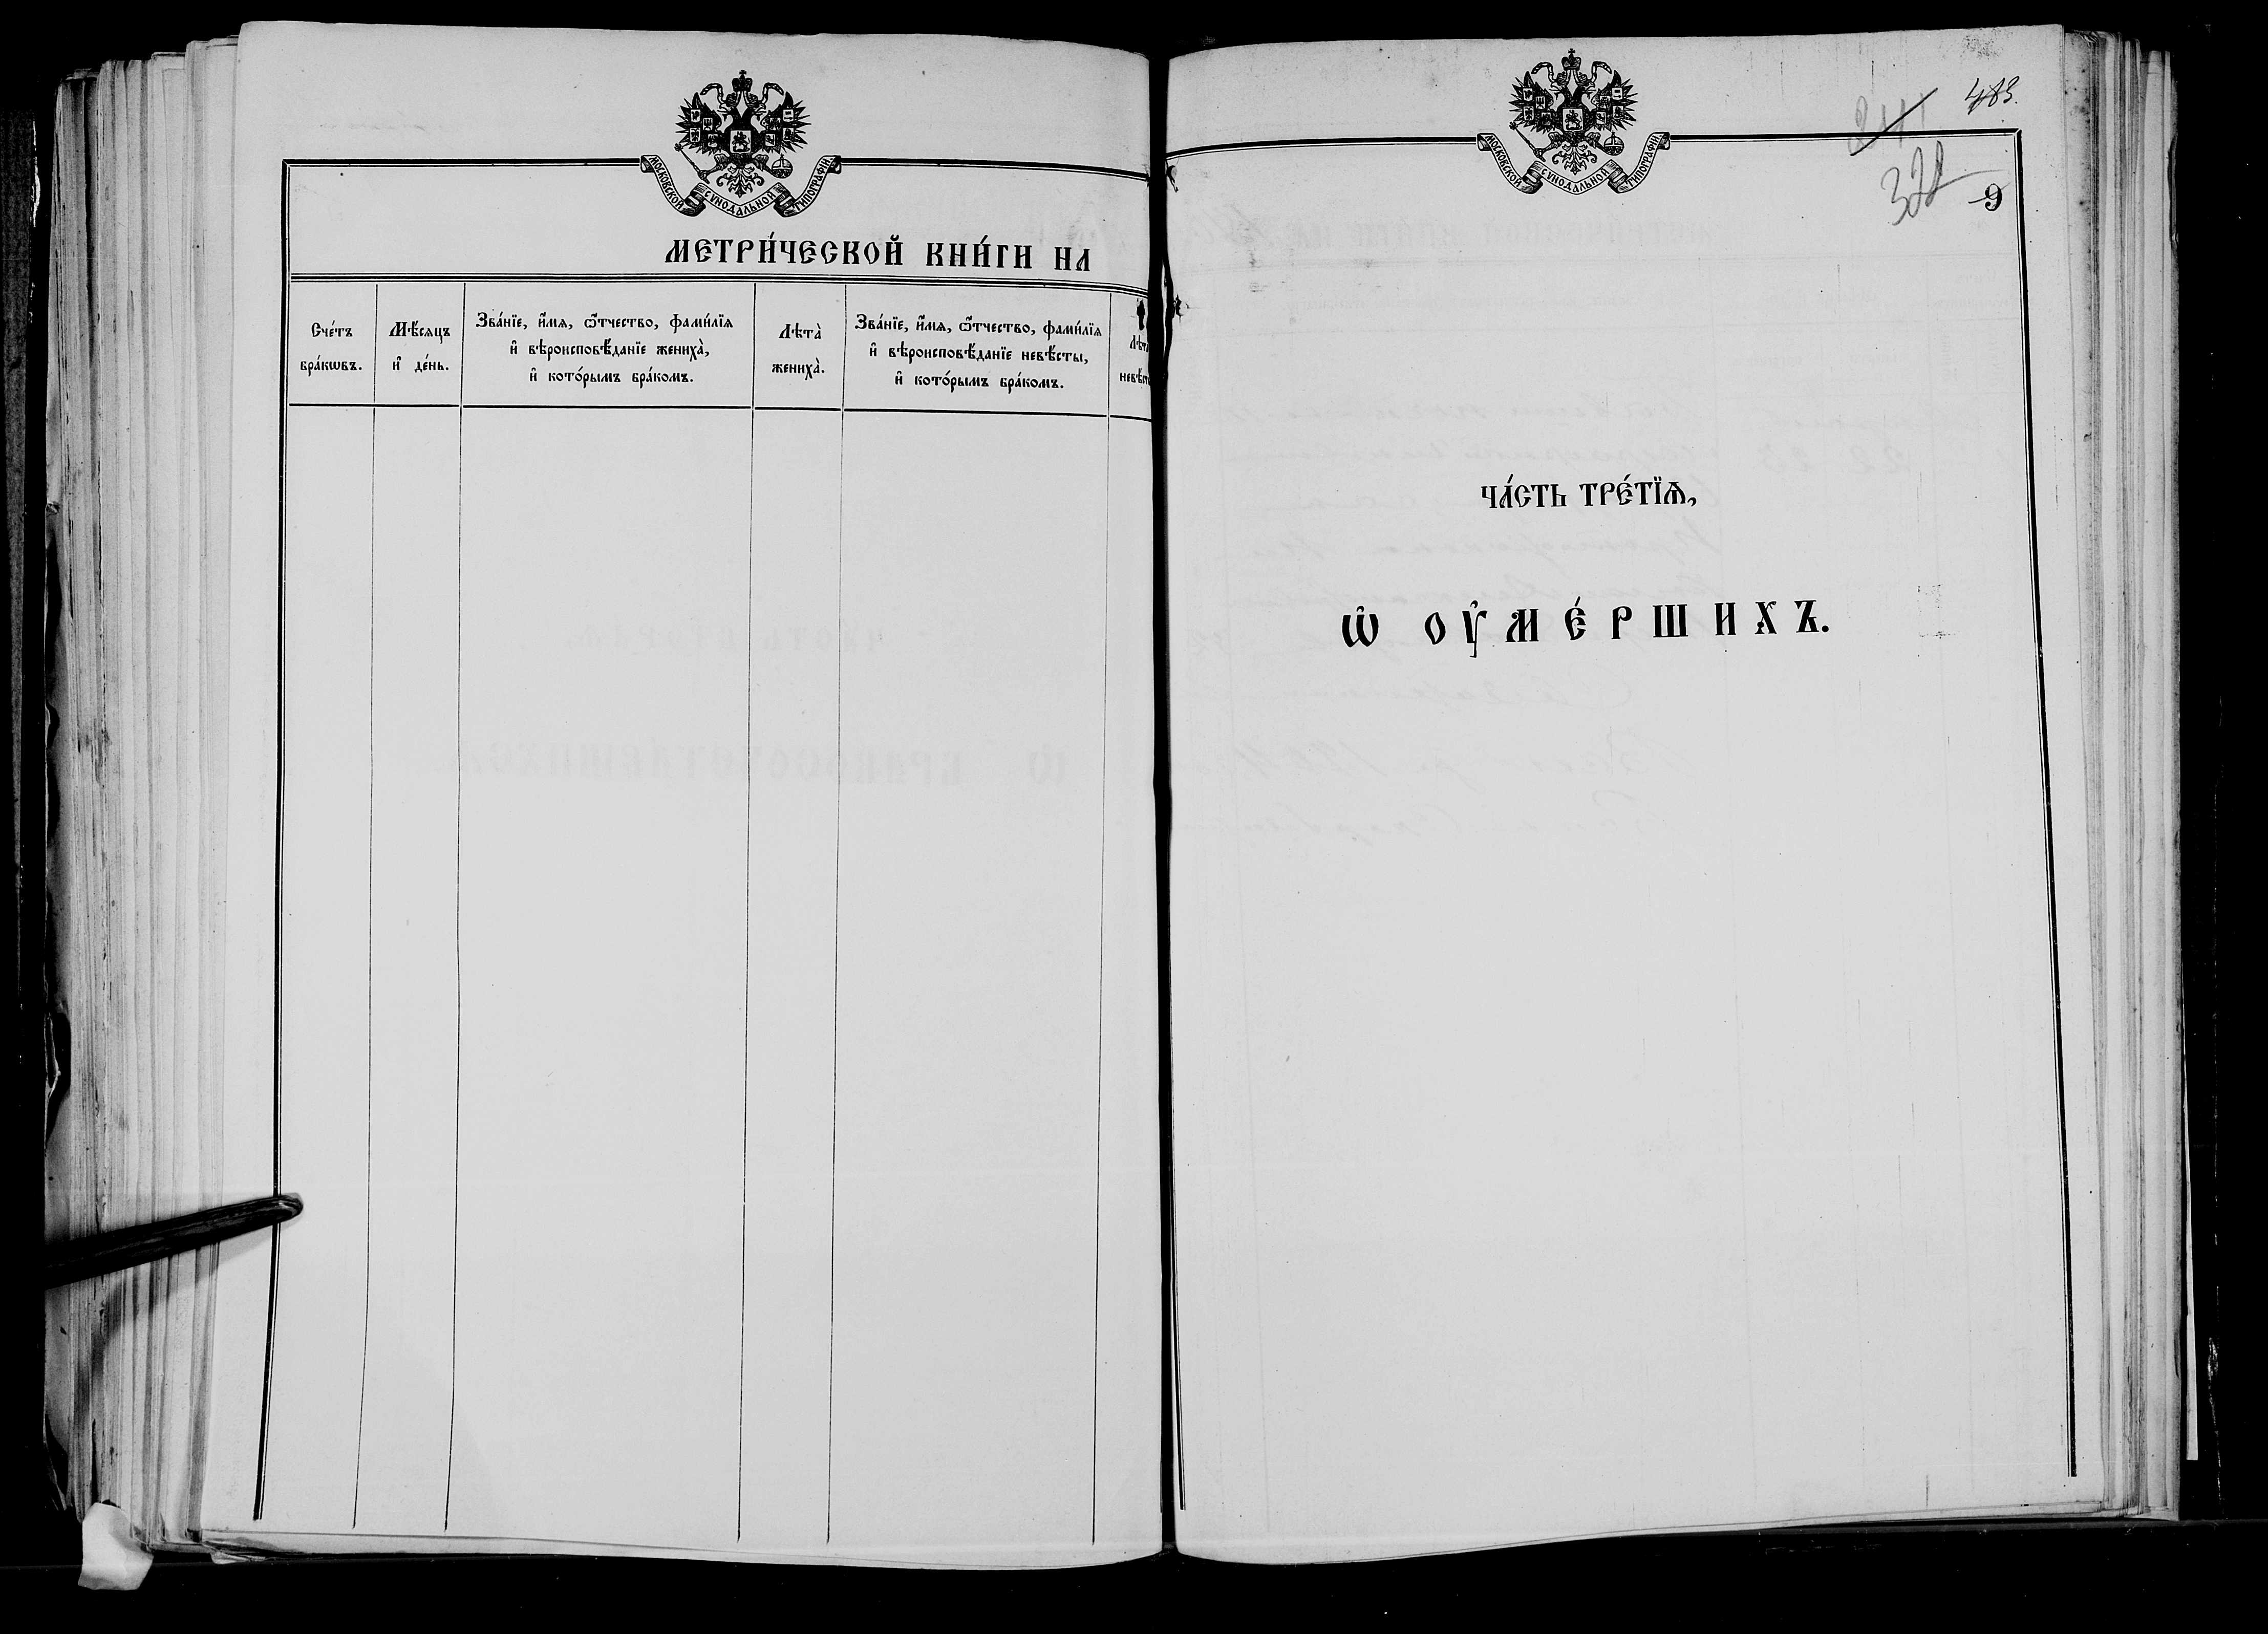 МОСКОВСКОЙ СѴНОДАЛЬНОЙ ТИПОГРАФІИ
МЕТРИ́ЧЕСКОЙ КНИ́ГИ НА
Сче́тъ
бра́кѡвъ.
Мѣ́сяцъ
и҆ де́нь.
Зва́нїе, и҆́мѧ, ѻ҆́тчество, фами́лїѧ
и҆ вѣроисповѣ́данїе женихà,
и҆ кото́рымъ бра́комъ.
Лѣтà
женихà.
Зва́нїе, и҆́мѧ, ѻ҆́тчество, фами́лїѧ
и҆ вѣроисповѣ́данїе невѣ́сты,
и҆ кото́рымъ бра́комъ.
МОСКОВСКОЙ СѴНОДАЛЬНОЙ ТИПОГРАФІИ
483.
9
ЧА́СТЬ ТРЕ́ТЇѦ,
Ѡ҆ ОУ҆МЕ́РШИХЪ.